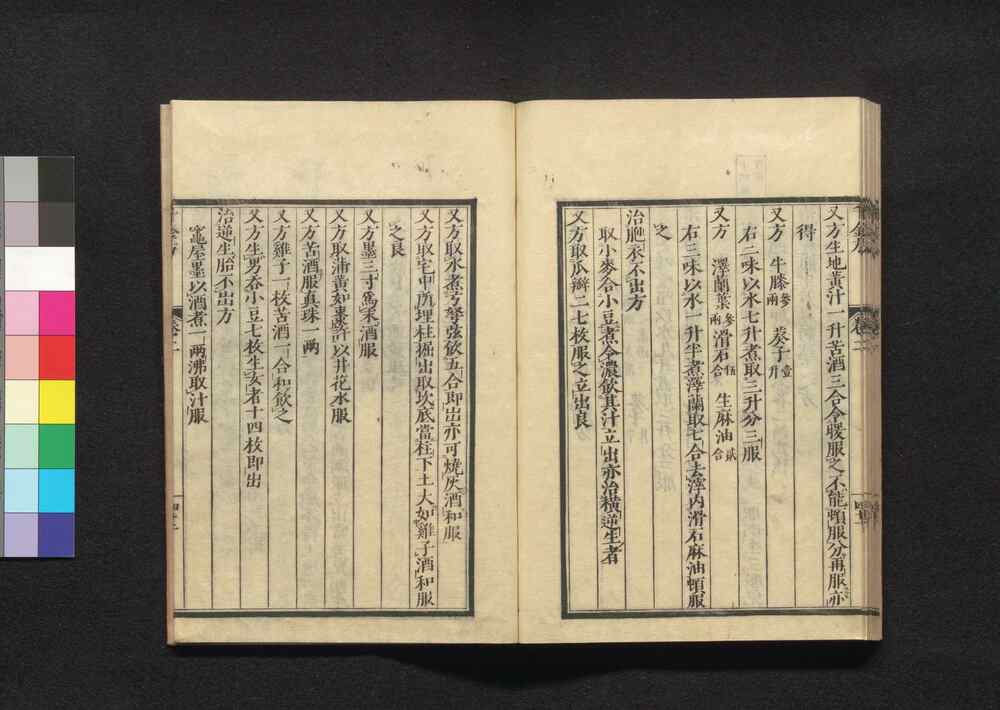 又方生地黃汁一升苦酒三合令暖服之不能頓服分再服亦
得
又方　牛膝參兩　葵子壹升
右二味以水七升煮取三升分三服
又方　澤蘭葉參兩　滑石伍合　生麻油貳合
右三味以水一升半煮澤蘭取七合去滓內滑石麻油頓服
之
治胞衣不出方
取小麥合小豆煮令濃飲其汁立出亦治橫逆生者
又方取瓜瓣二七枚服之立出良
又方取水煮弓弩弦飲五合即出亦可燒灰酒和服
又方取宅中所埋柱掘出取坎底當柱下土大如雞子酒和服
之良
又方墨三寸爲末酒服
又方取蒲黃如棗許以井花水服
又方苦酒服真珠一兩
又方雞子一枚苦酒一合和飲之
又方生男吞小豆七枚生女者十四枚即出
治逆生胎不出方
竈屋墨以酒煮一兩沸取汁服